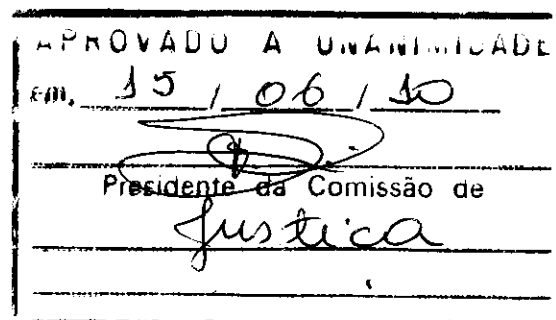 APROVADO A UNANIMIDADE
em, 15 / 06 / 10
Presidente da Comissão de
Justica